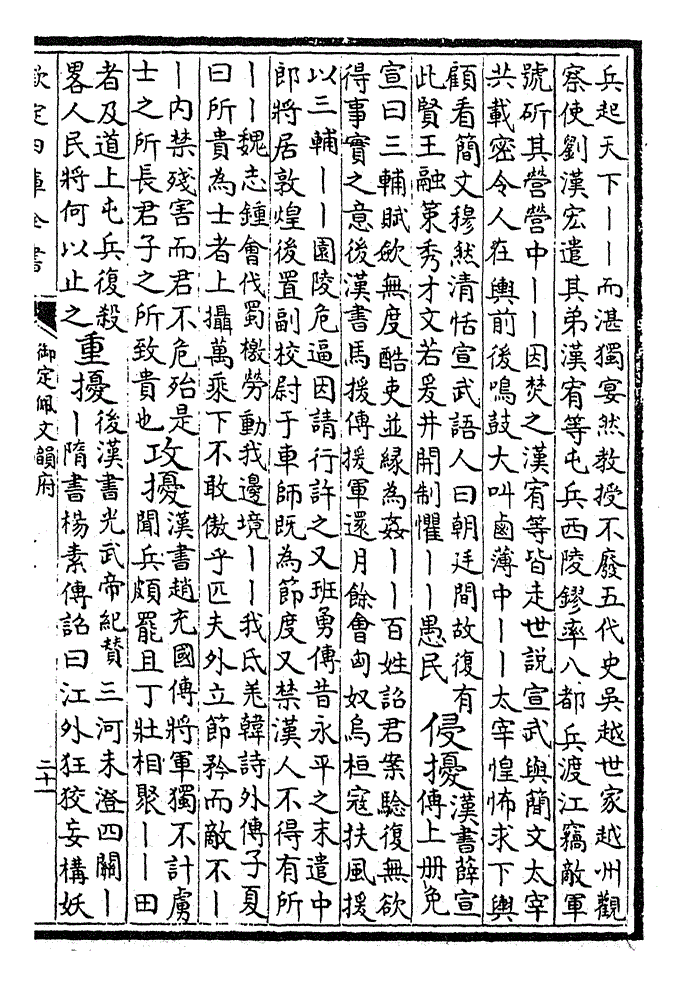 兵起天下｜｜而湛獨宴然教授不廢五代史吳越世家越州觀
察使劉漢宏遣其弟漢宥等屯兵西陵鏐率八都兵渡江竊敵軍
號斫其營營中｜｜因焚之漢宥等皆走世説宣武與簡文太宰
共載密令人在輿前後鳴鼓大叫鹵薄中｜｜太宰惶怖求下輿
顧看簡文穆然清恬宣武語人曰朝廷間故復有
此賢王融策秀才文若爰井開制懼｜｜愚民
侵擾
漢書薛宣
傳上册免
宣曰三輔賦斂無度酷吏並緣為姦｜｜百姓詔君案驗復無欲
得事實之意後漢書馬援傳援軍還月餘會匈奴烏桓寇扶風援
以三輔｜｜園陵危逼因請行許之又班勇傳昔永平之末遣中
郎將居敦煌後置副校尉于車師既為節度又禁漢人不得有所
｜｜魏志鍾會代蜀檄勞動我邊境｜｜我氐羌韓詩外傳子夏
曰所貴為士者上攝萬乘下不敢傲乎匹夫外立節矜而敵不｜
｜内禁殘害而君不危殆是
士之所長君子之所致貴也
攻擾
漢書趙充國傳將軍獨不計虜
聞兵頗罷且丁壯相聚｜｜田
者及道上屯兵復殺
畧人民將何以止之
重擾
後漢書光武帝紀贊三河未澄四關｜
｜隋書楊素傳詔曰江外狂狡妄構妖
欽定四庫全書
御定佩文韻府
二十一